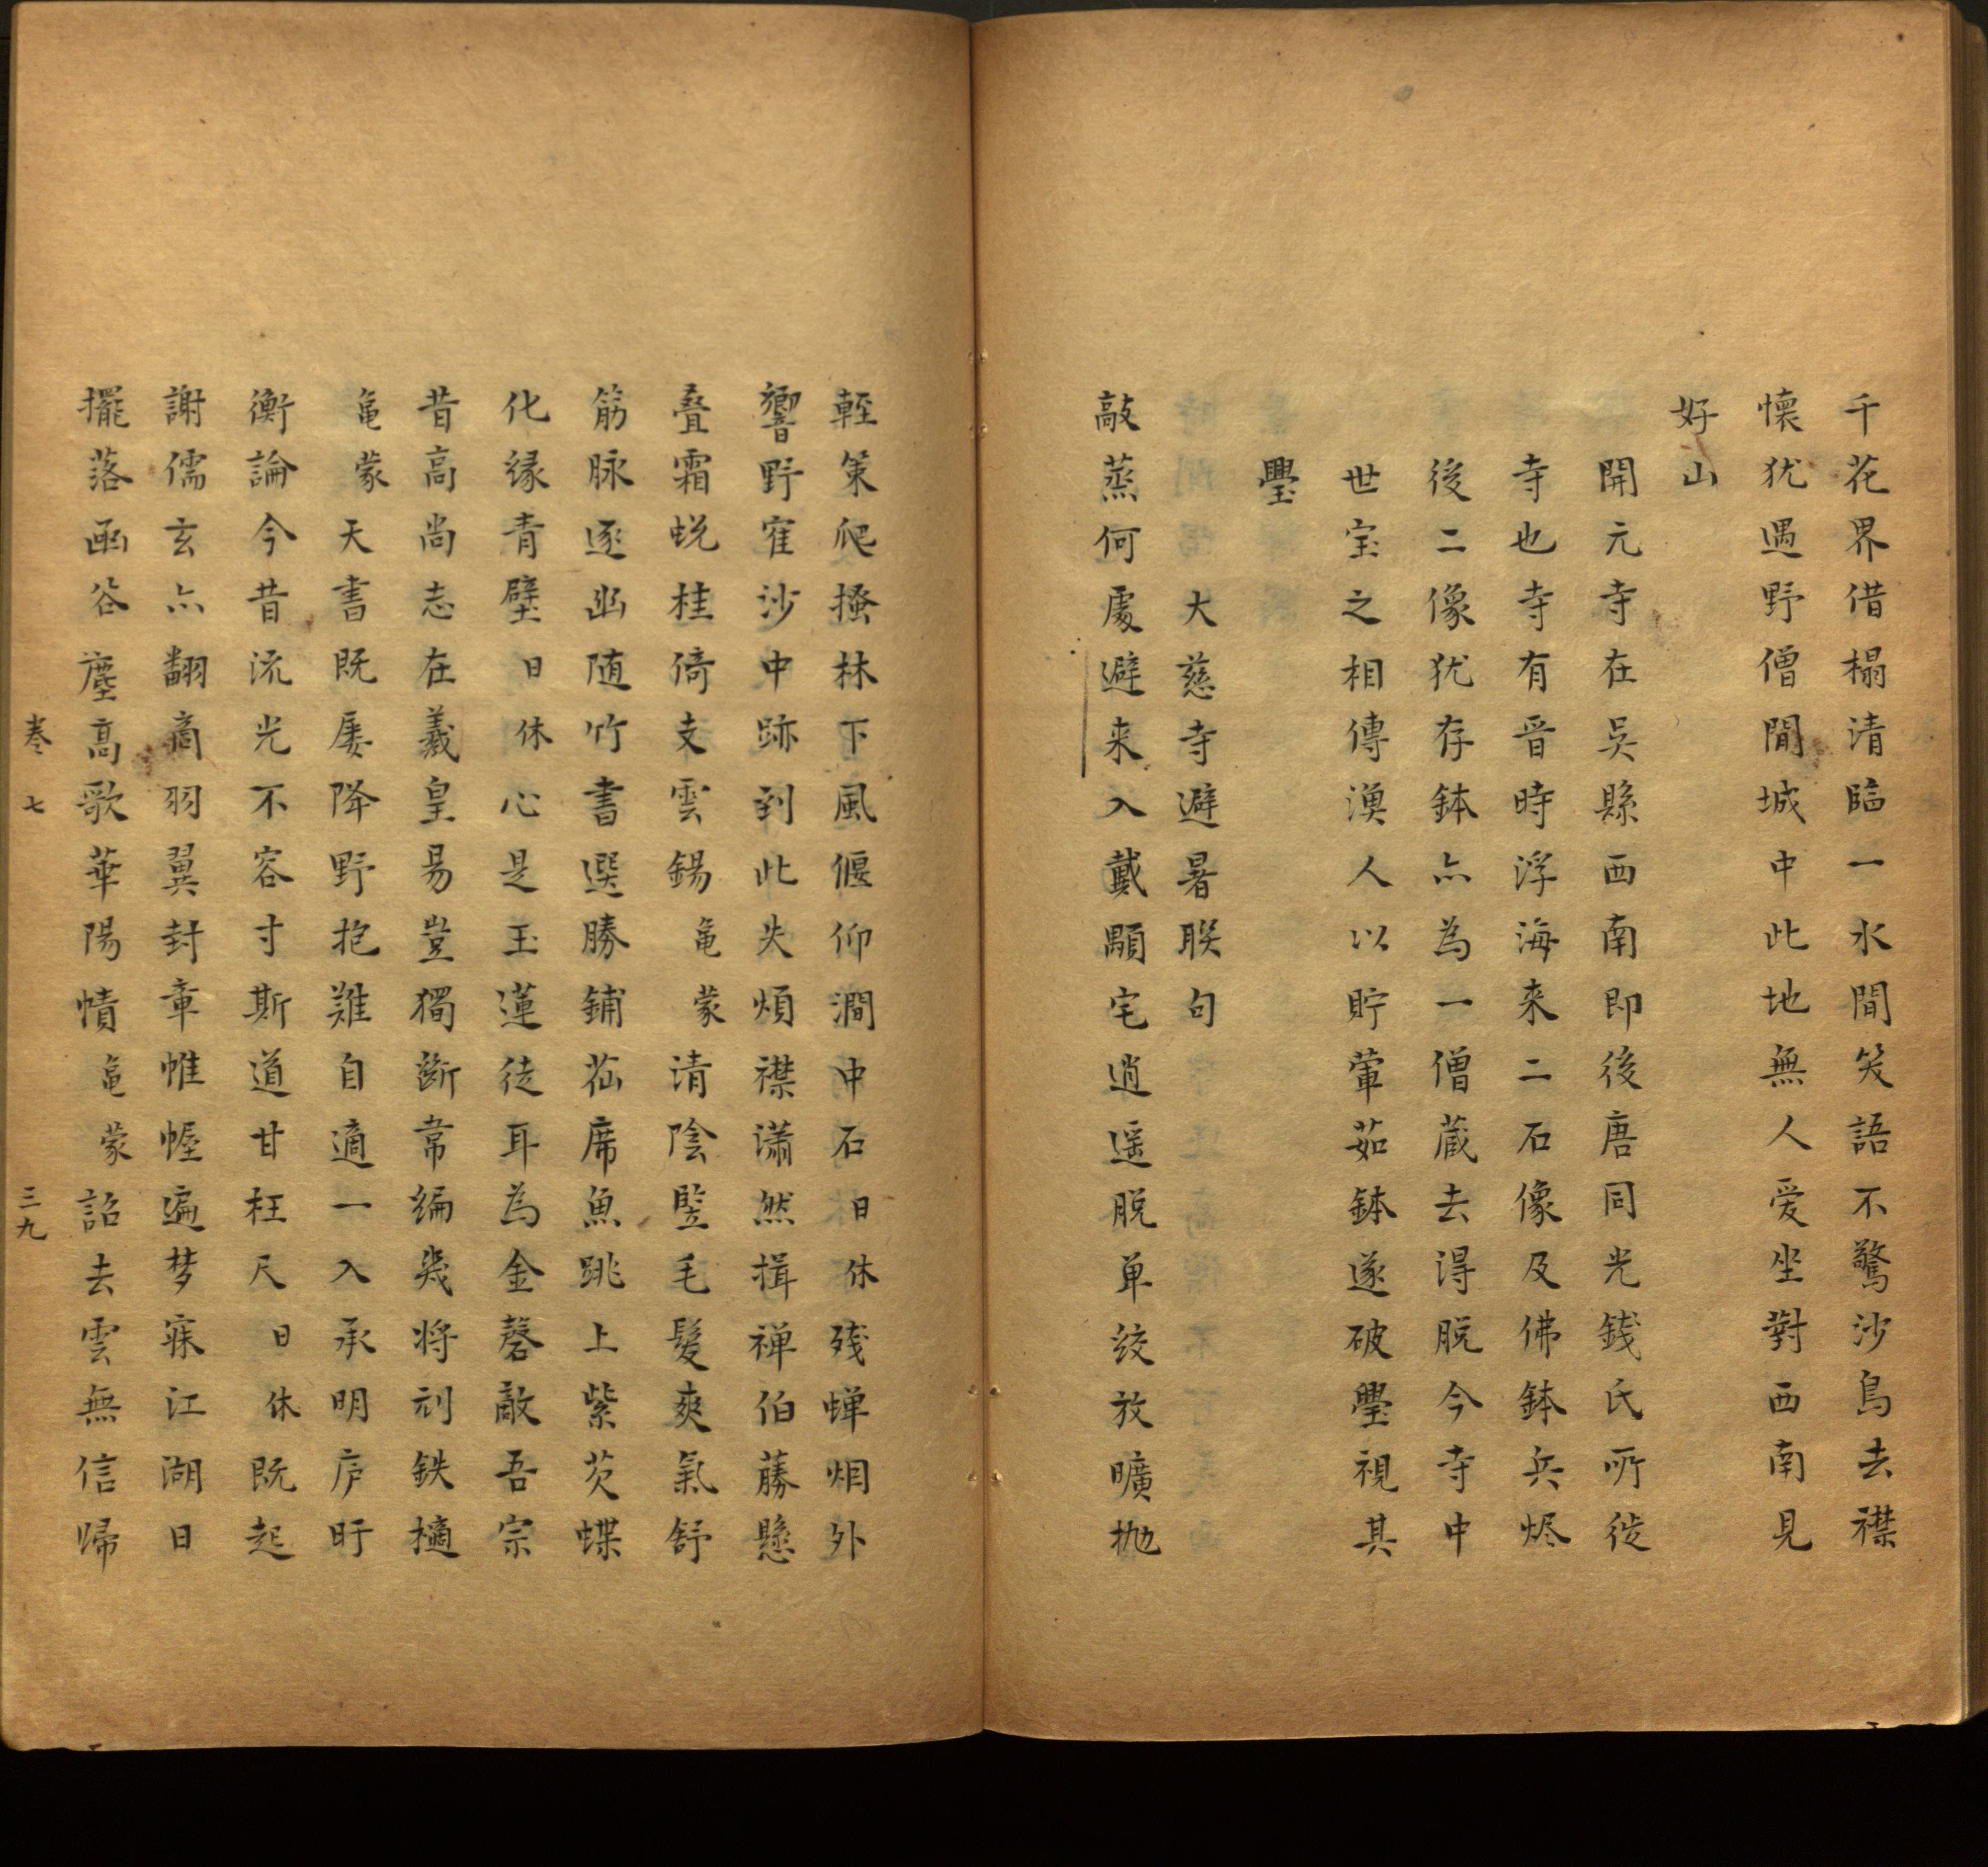 千花界借榻清臨一水間笑語不驚沙鳥去襟
懷犹遇野僧閒城中此地無人爱坐對西南見
好山
開元寺在吳縣西南即後唐同光銭氏所徙
寺也寺有晋時浮海来二石像及佛鉢兵烬
後二像犹存鉢亦為一僧蔵去得脱今寺中
世宝之相傳漁人以貯葷茹鉢遂破璺視其
璺
大慈寺避暑联句
敲蒸何處避来入戴顒宅逍遥脱单絞放曠抛
輕策爬搔林下風偃仰澗中石日休残蝉烟外
響野寉沙中跡到此失煩襟瀟然揖禅伯藤懸
叠霜蛻桂倚支雲錫龟蒙清陰竪毛髮爽氣舒
筋脉逐幽随竹書選勝鋪茘席魚跳上紫芡蝶
化緣青壁日休心是玉蓮徒耳為金磬敵吾宗
昔高尚志在羲皇易豈獨断韦编幾将刓鉄擿
龟蒙天書既屡降野抱難自適一入承明庐盱
衡論今昔流光不容寸斯道甘枉尺日休既起
謝儒玄亦翻商羽翼封章帷幄遍梦寐江湖日
擺落函谷塵高歌華陽幘龟蒙詔去雲無信帰
卷七
三九